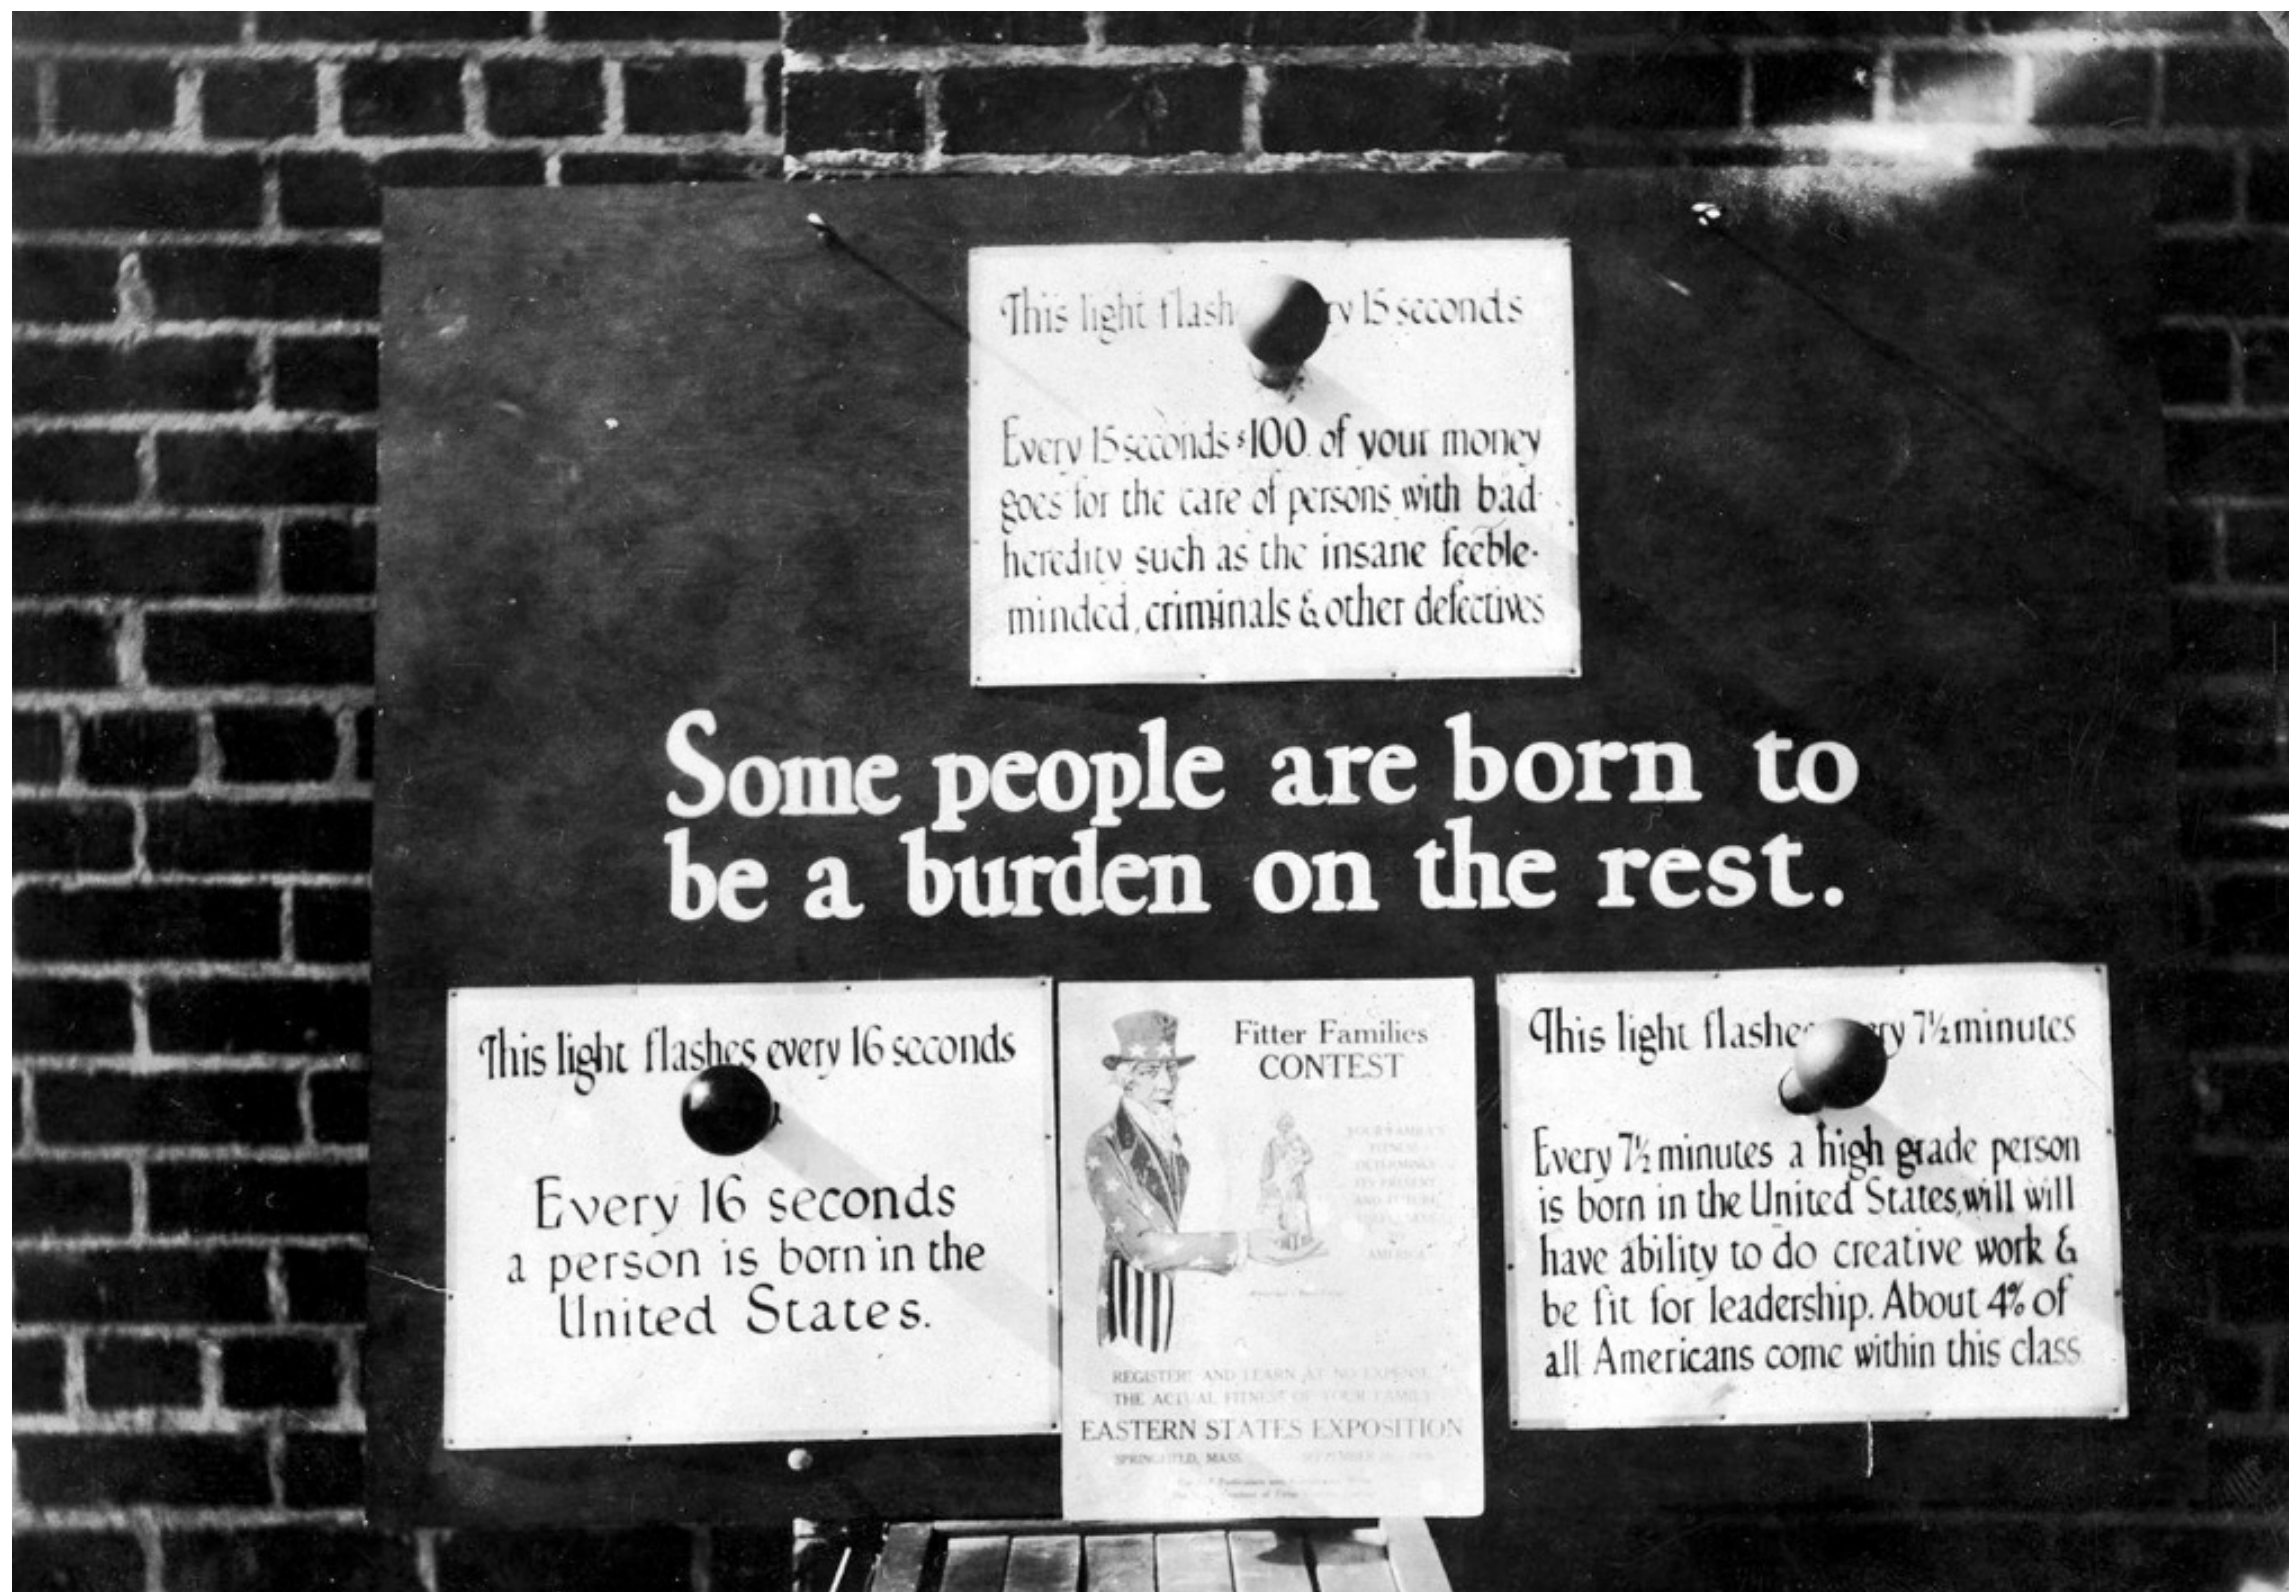 This light flash ry 15 seconds
Every 15 seconds $100. of your money
goes for the care of persons with bad
heredity such as the insane feeble-
minded, criminals & other defectives
Some people are born to
be a burden on the rest.
This light flashes every 16 seconds
Every 16 seconds
a person is born in the
United States.
Fitter Families
CONTEST
YOUR FAMILY'S
FITNESS
DETERMINES
ITS PRESENT
AND FUTURE
AMERICA
REGISTER! AND LEARN AT NO EXPENSE
THE ACTUAL FITNESS OF YOUR FAMILY
EASTERN STATES EXPOSITION
SPRINGFIELD, MASS. SEPTEMBER
This light flashes ry 7½ minutes
Every 7½ minutes a high grade person
is born in the United States, will will
have ability to do creative work &
be fit for leadership. About 4% of
all Americans come within this class